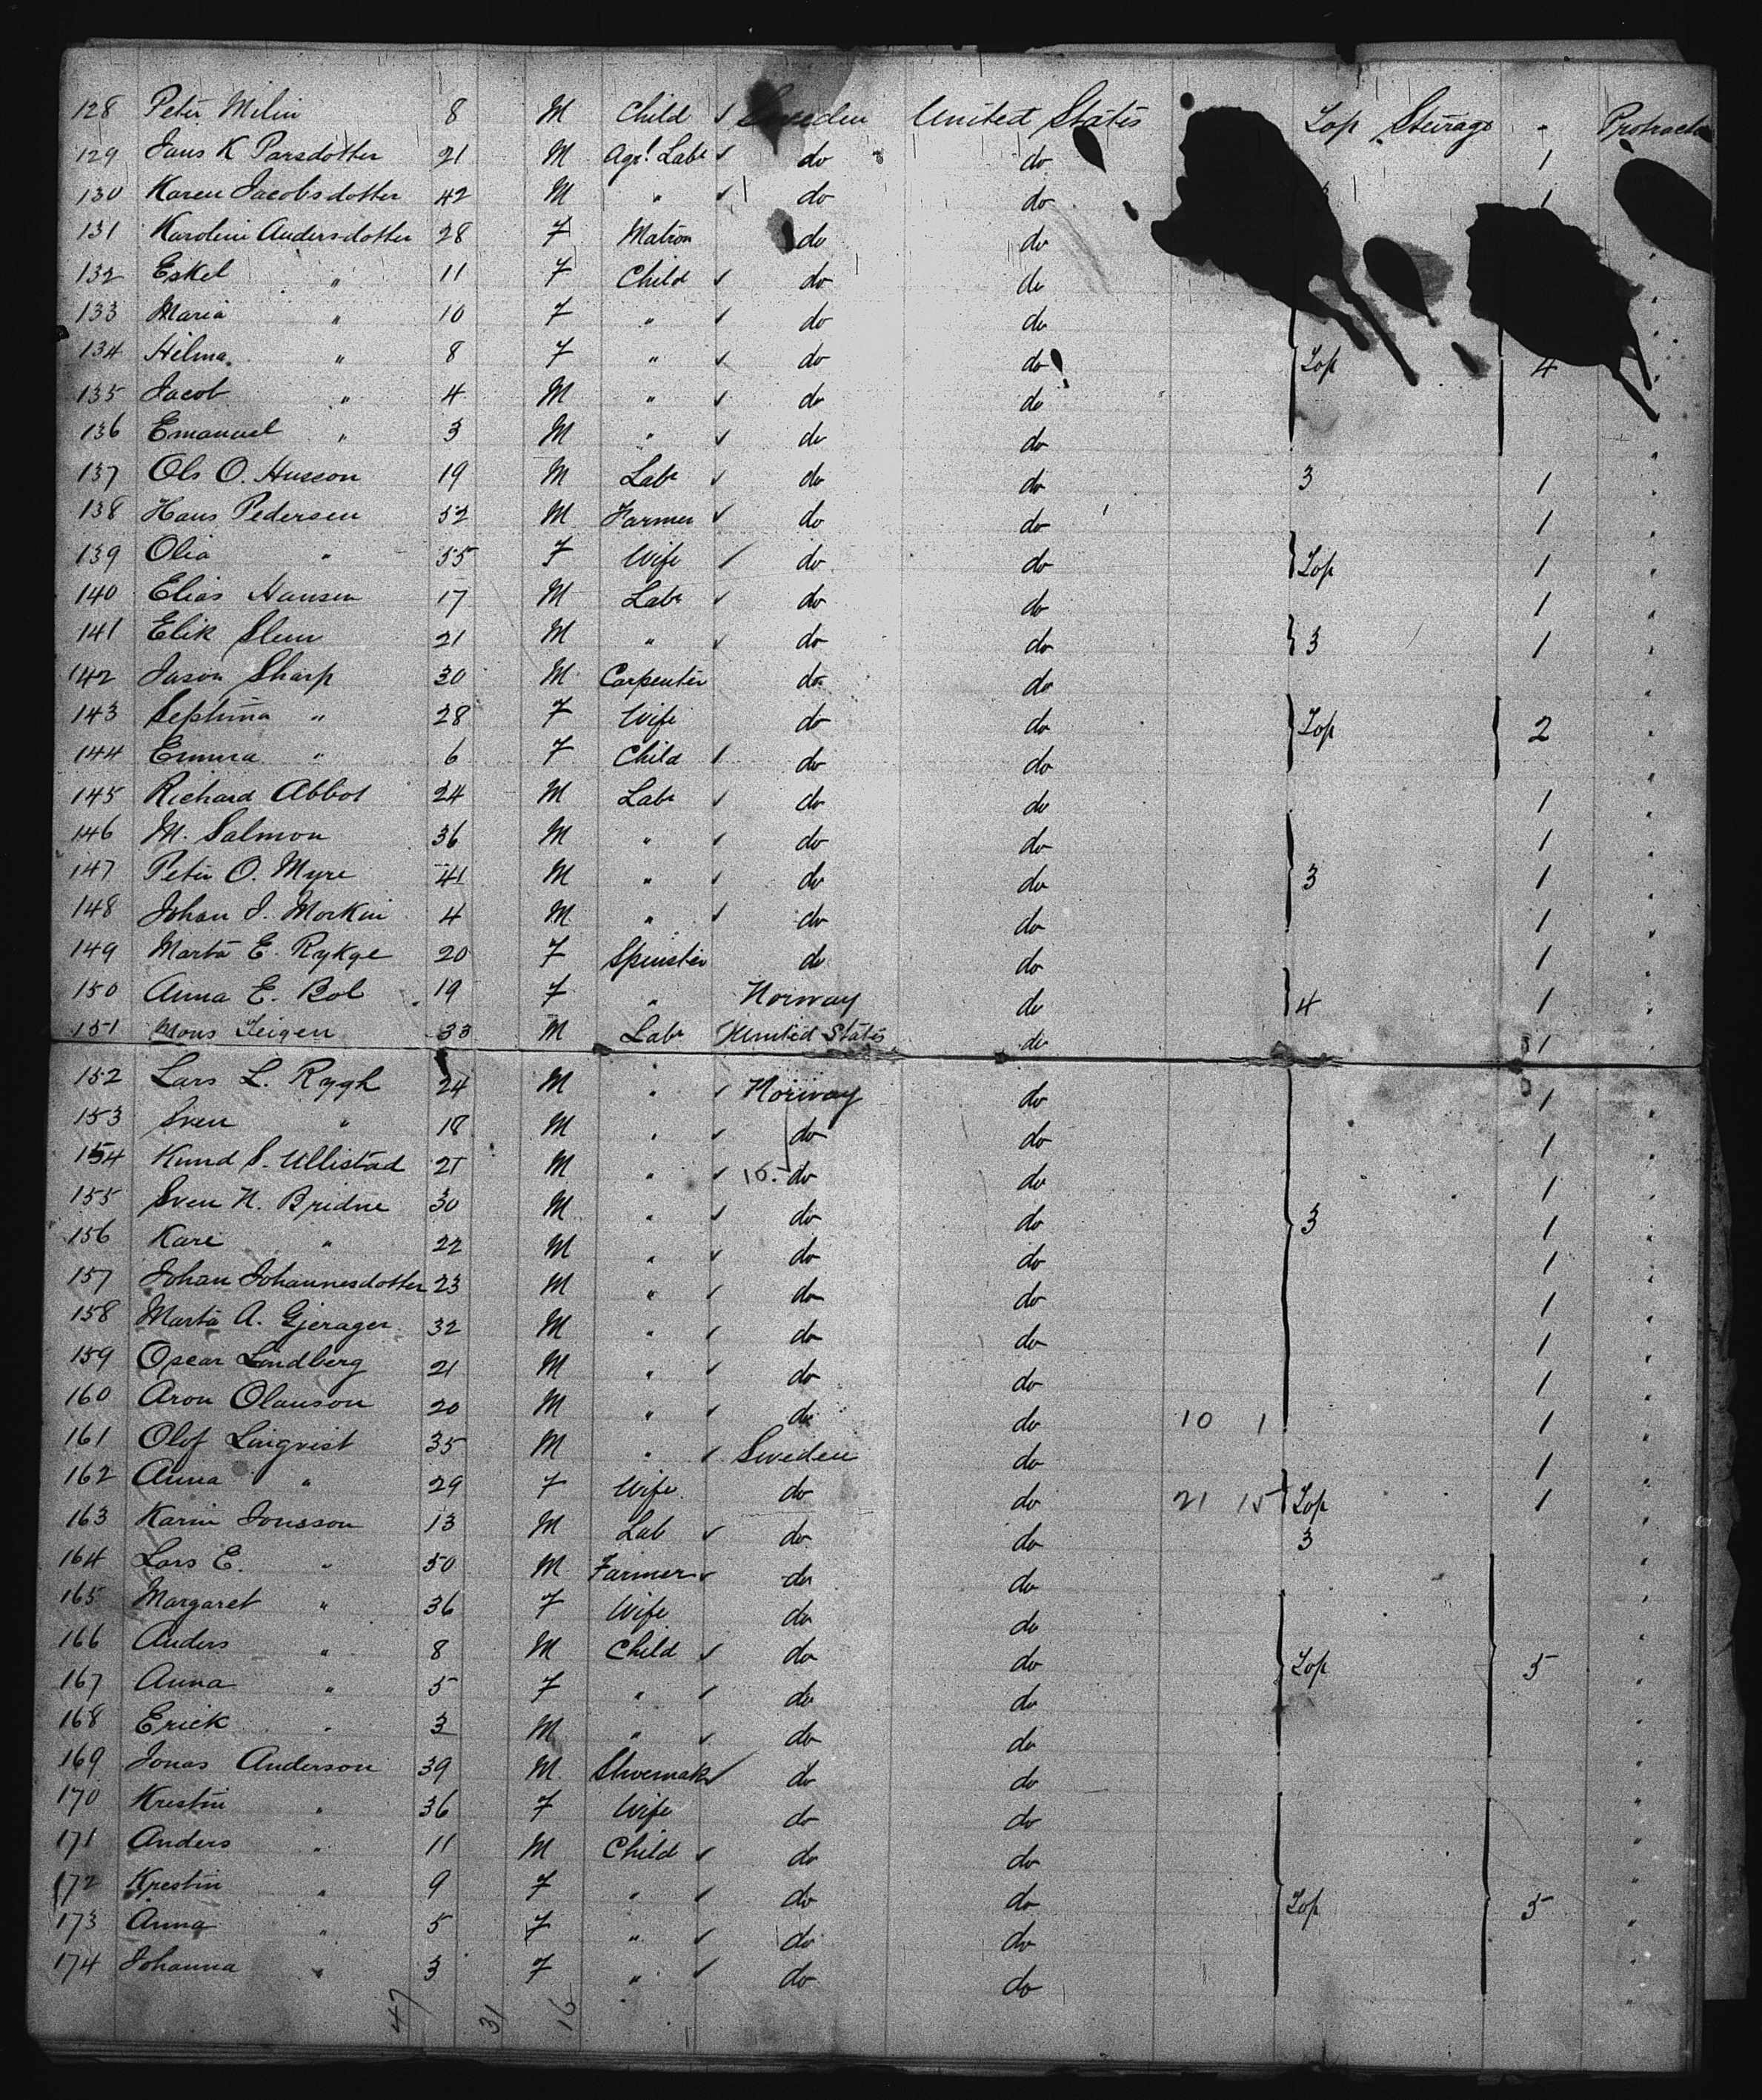 128 Peter Milin 8 M Child ✓ Sweden United States Top Steerage - Protracted
129 Jans K Parsdotter 21 M Agr! Labr ✓ do do 1
130 Karen Jacobsdotter 42 M " ✓ do do 1
131 Karolini Andersdotter 28 F Matron do do "
132 Eskel " 11 F Child ✓ do do "
133 Maria " 10 F " ✓ do do "
134 Hilma " 8 F " ✓ do do Top 4 "
135 Jacob " 4 M " ✓ do do "
136 Emanuel " 3 M " ✓ do do "
137 Ols O. Husson 19 M Labr ✓ do do 3 1 "
138 Hans Pedersen 52 M Farmer ✓ do do 1 "
139 Olia " 55 F Wife ✓ do do Top 1 "
140 Elias Hansen 17 M Labr ✓ do do 1 "
141 Elik Slem 21 M " ✓ do do 3 1 "
142 Jason Sharp 30 M Carpenter do do "
143 Septima " 28 F Wife do do Top 2 "
144 Emma " 6 F Child ✓ do do "
145 Richard Abbot 24 M Labr ✓ do do 1 "
146 M. Salmon 36 M " ✓ do do 1 "
147 Peter O. Myre 41 M " ✓ do do 3 1 "
148 Johan J. Morkin 4 M " ✓ do do 1 "
149 Marta E. Rykge 20 F Spinster do do 1 "
150 Anna E. Bol 19 F " Norway do 4 1 "
151 Mons Teigen 33 M Labr United States do 1 "
152 Lars L. Rygh 24 M " ✓ Norway do 1 "
153 Sven " 18 M " ✓ do do 1 "
154 Knud S. Ullistad 21 M " ✓ 15. do do 1 "
155 Sven N. Bridne 30 M " ✓ do do 3 1 "
156 Kari " 22 M " ✓ do do 1 "
157 Johan Johannesdotter 23 M " ✓ do do 1 "
158 Marta A. Gjerager 32 M " ✓ do do 1 "
159 Oscar Lindberg 21 M " ✓ do do 1 "
160 Aron Olauson 20 M " ✓ do do 10 1 1 "
161 Olof Linqvist 35 M " ✓ Sweden do 1 "
162 Anna " 29 F Wife do do 21 15 Top 1 "
163 Karin Jonsson 13 M Lab ✓ do do 3 "
164 Lars E. " 50 M Farmer ✓ do do "
165 Margaret " 36 F Wife do do "
166 Anders " 8 M Child ✓ do do Top 5 "
167 Anna " 5 F " ✓ do do "
168 Erick " 3 M " ✓ do do "
169 Jonas Anderson 39 M Shoemakr ✓ do do "
170 Krestin " 36 F Wife do do "
171 Anders " 11 M Child ✓ do do "
172 Krestin " 9 F " ✓ do do Top 5 "
173 Anna " 5 F " ✓ do do "
174 Johanna " 3 F " ✓ do do "
47 31 16